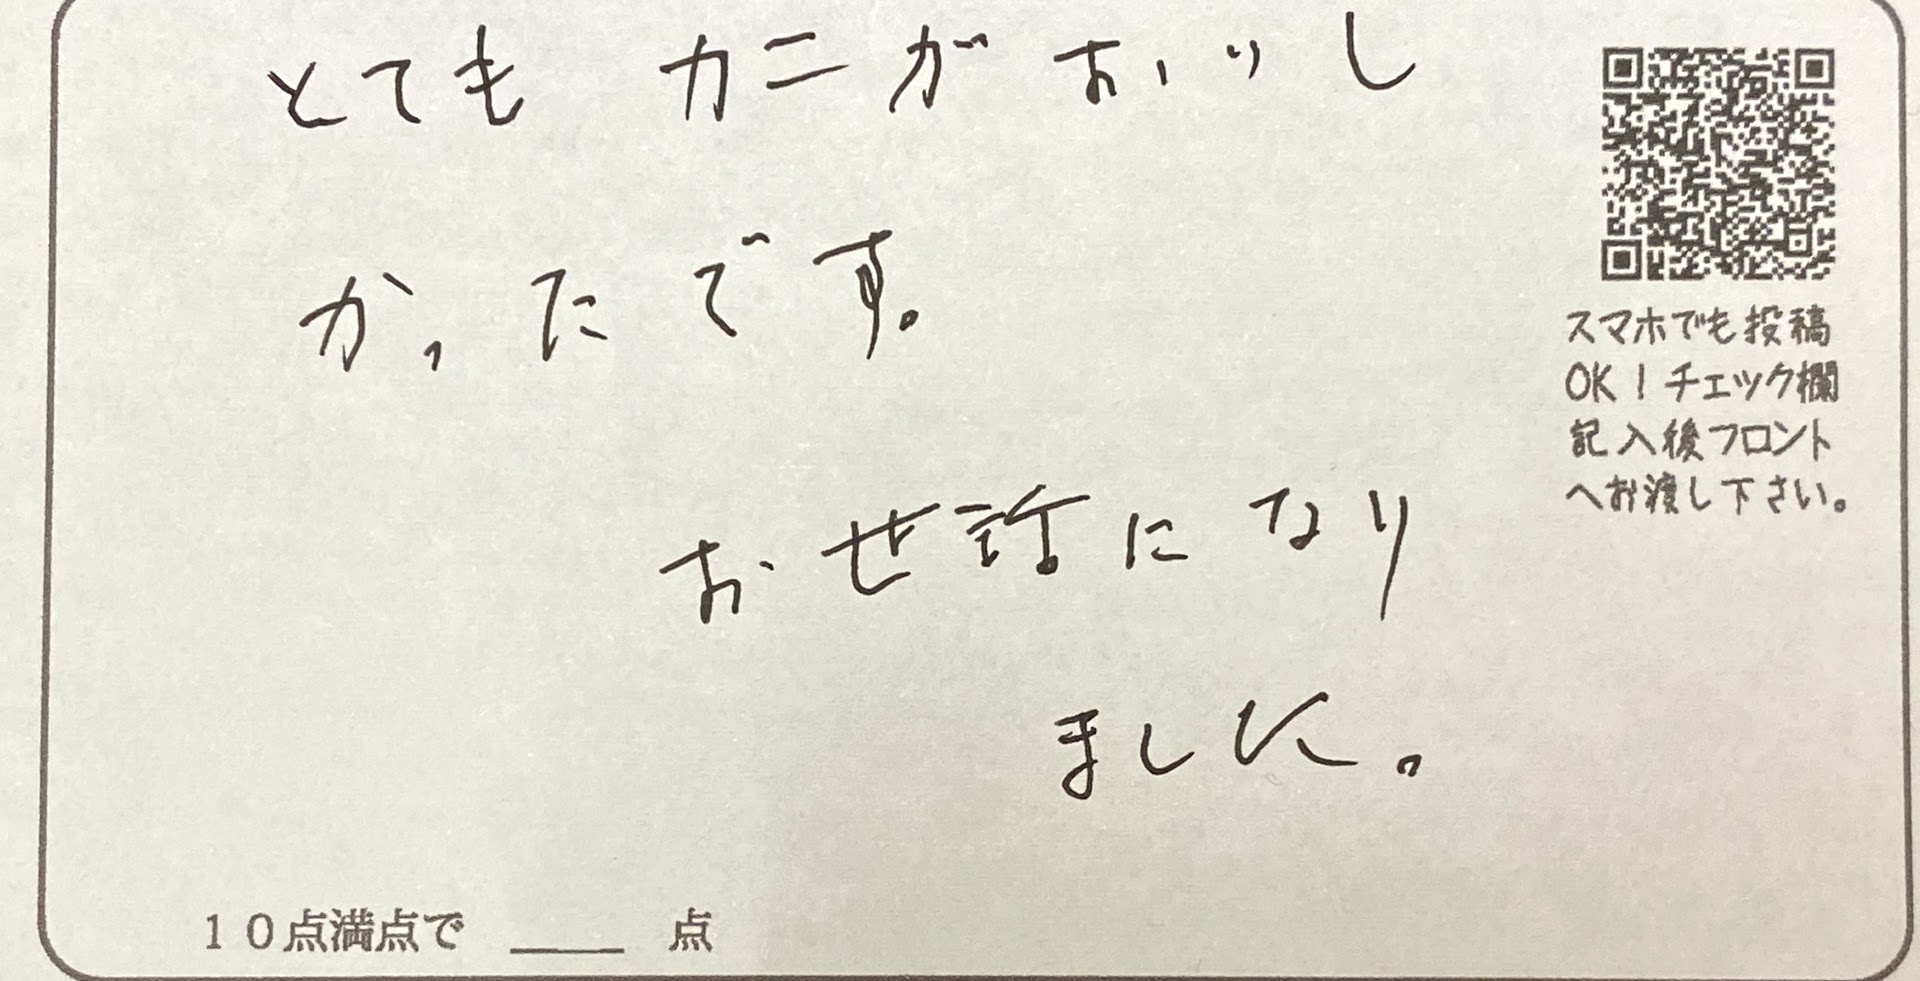 とても カニが おいし
かったです。
お世話になり
ました。
スマホでも投稿
OK！チェック欄
記入後フロント
へお渡し下さい。
１０点満点で ＿＿ 点